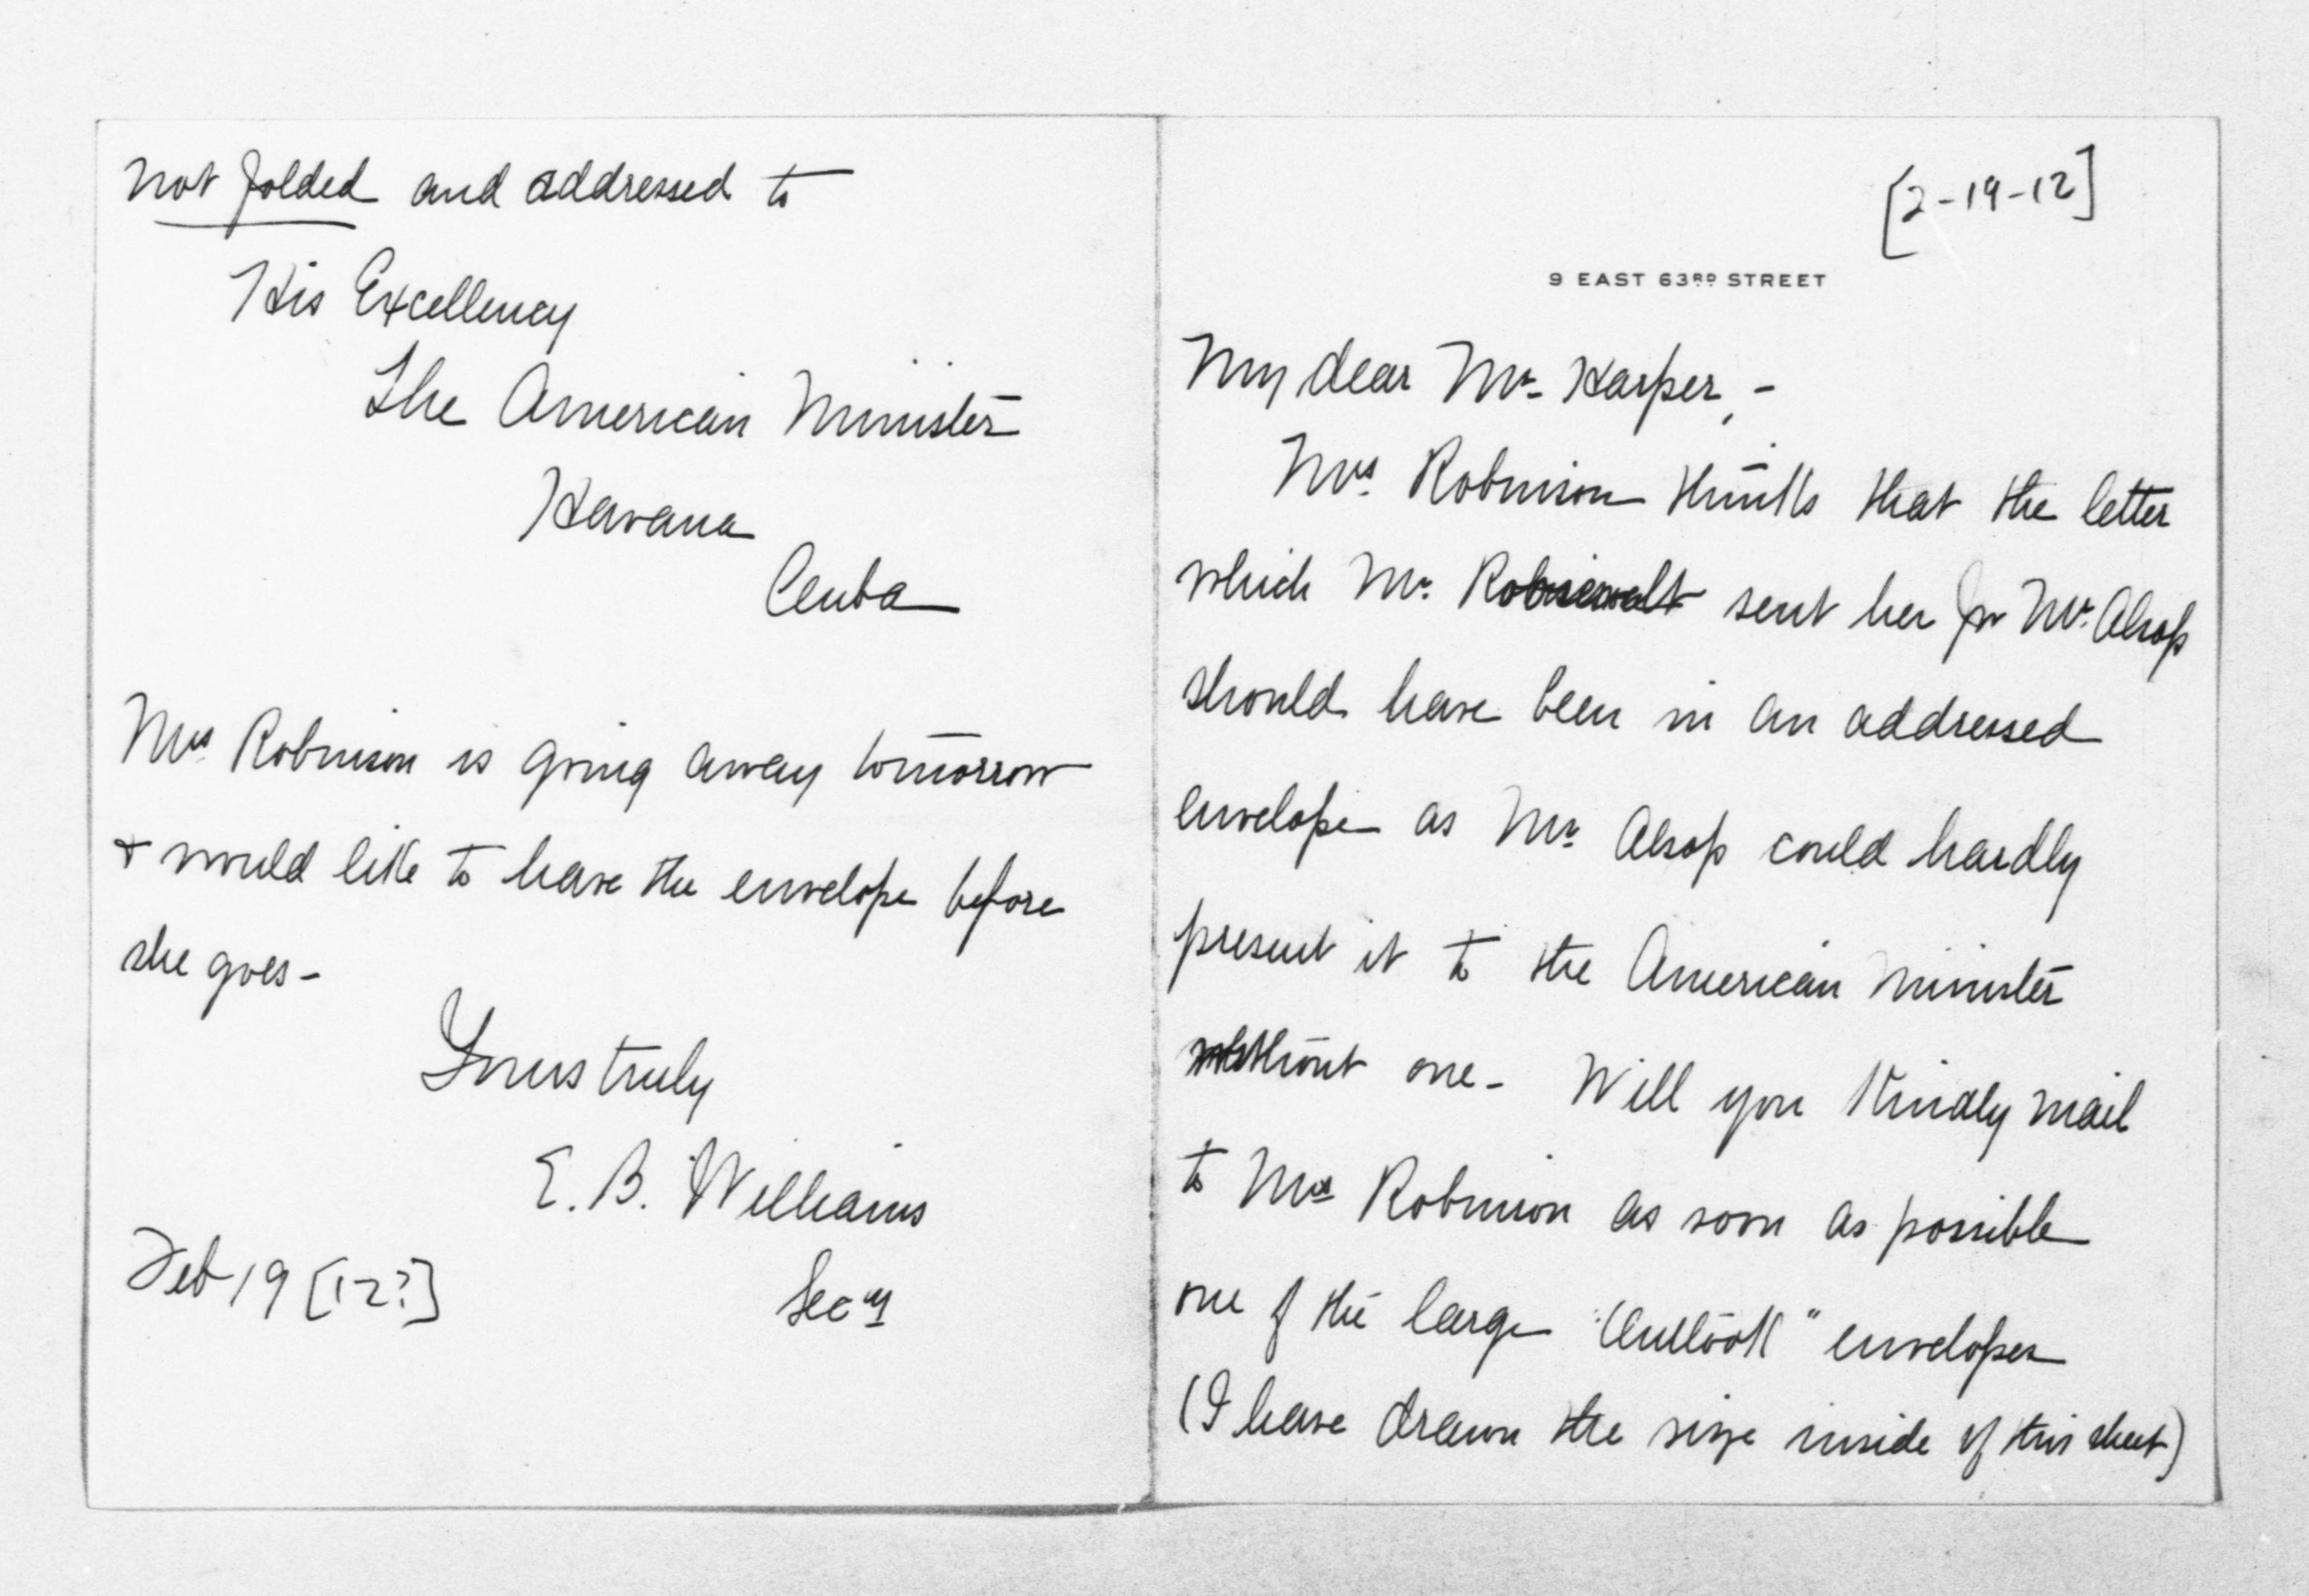 [2-19-12]
9 EAST 63RD STREET
My dear Mr. Harper, -
Mrs. Robinson thinks that the letter
which Mr. Roosevelt sent her for Mr. Alsop
should have been in an addressed
envelope as Mr. Alsop could hardly
present it to the American Minister
without one - Will you kindly mail
to Mrs Robinson as soon as possible
one of the large "Outlook" envelopes
(I have drawn the size inside of this sheet)
not folded and addressed to
His Excellency
The American Minister
Havana
Cuba
Mrs. Robinson is going away tomorrow
& would like to have the envelope before
she goes -
Yours truly
E. B. Williams
Secy
Feb 19 [12?]